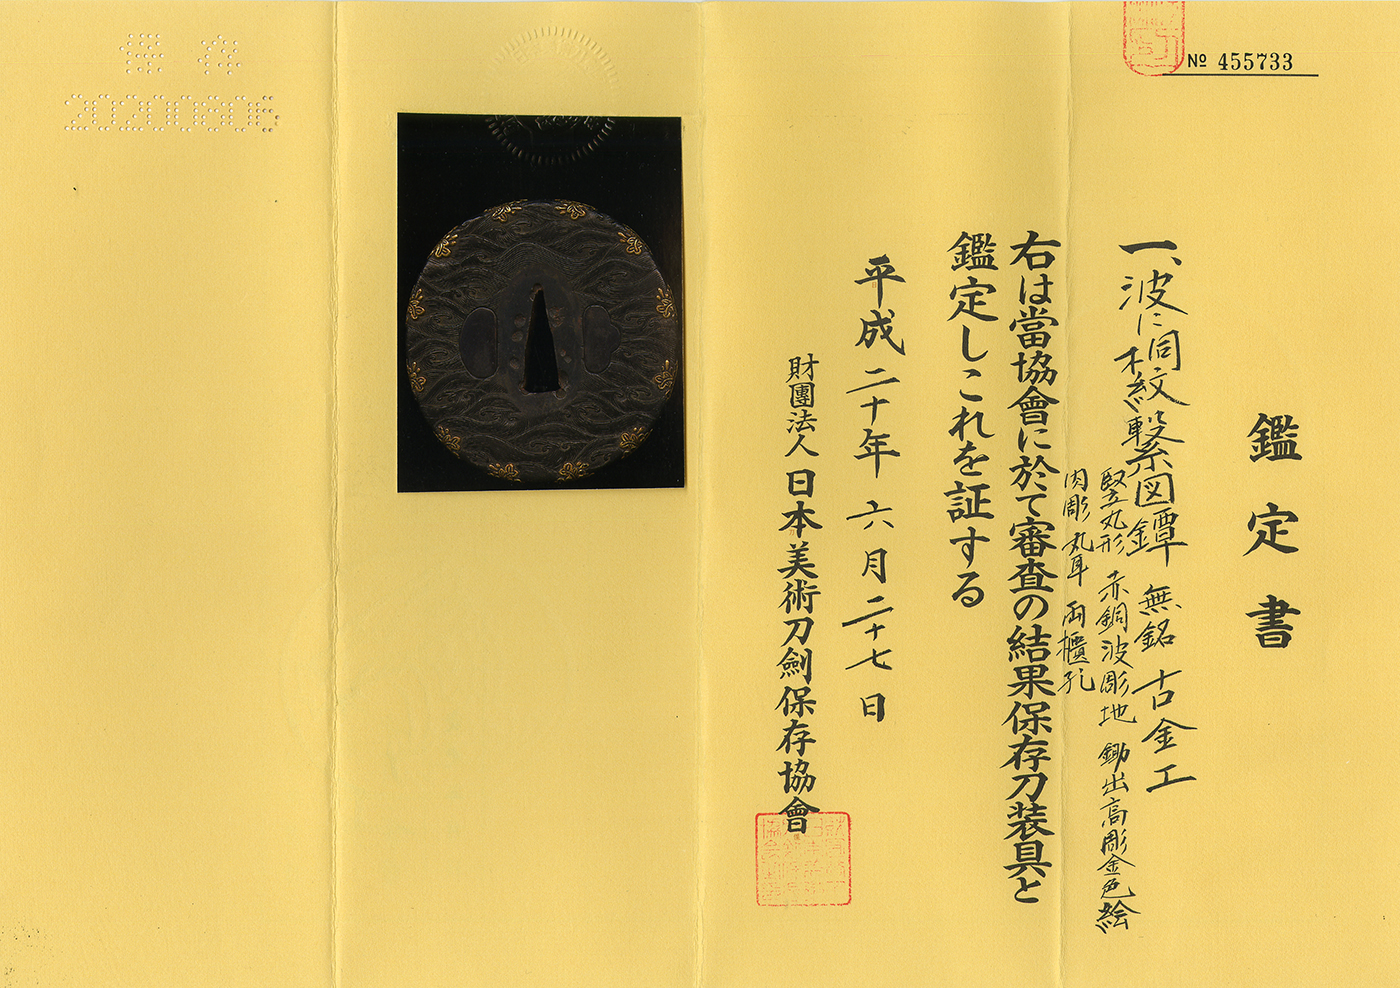 № 455733
鑑定書
一、波に桐紋繋図鐔 無銘 古金工
竪丸形 赤銅波彫地 鋤出高彫金色絵
肉彫丸耳 両櫃孔
右は當協會に於て審査の結果保存刀装具と
鑑定しこれを証する
平成二十年六月二十七日
財團法人 日本美術刀劍保存協會
保存
20200606